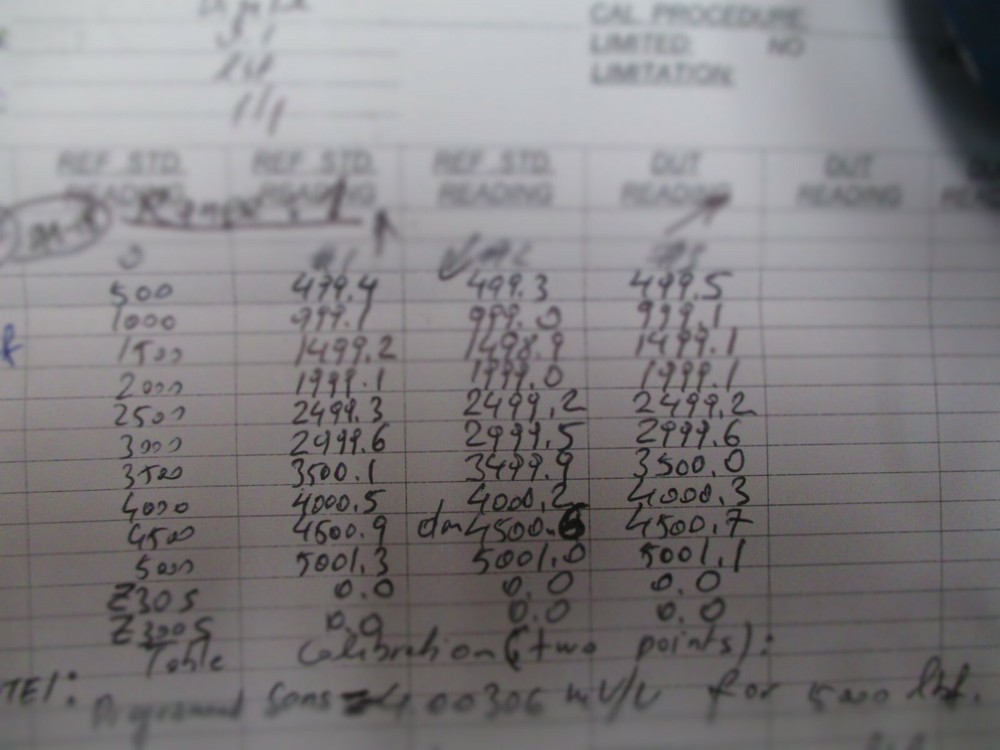 CAL. PROCEDURE
LIMITED: NO
LIMITATION:
REF. STD. READING REF. STD. READING REF. STD. READING DUT READING DUT READING
0 #1 #2 #3
500 499.4 499.3 499.5
1000 999.1 999.0 999.1
1500 1499.2 1498.9 1499.1
2000 1999.1 1999.0 1999.1
2500 2499.3 2499.2 2499.2
3000 2999.6 2999.5 2999.6
3500 3500.1 3499.9 3500.0
4000 4000.5 4000.2 4000.3
4500 4500.9 dm 4500.6 4500.7
5000 5001.3 5001.0 5001.1
Z30S 0.0 0.0 0.0
Z300S 0.0 0.0 0.0
Table Calibration (two points):
Sens 4.00306 mV/V for 5000 lbf.